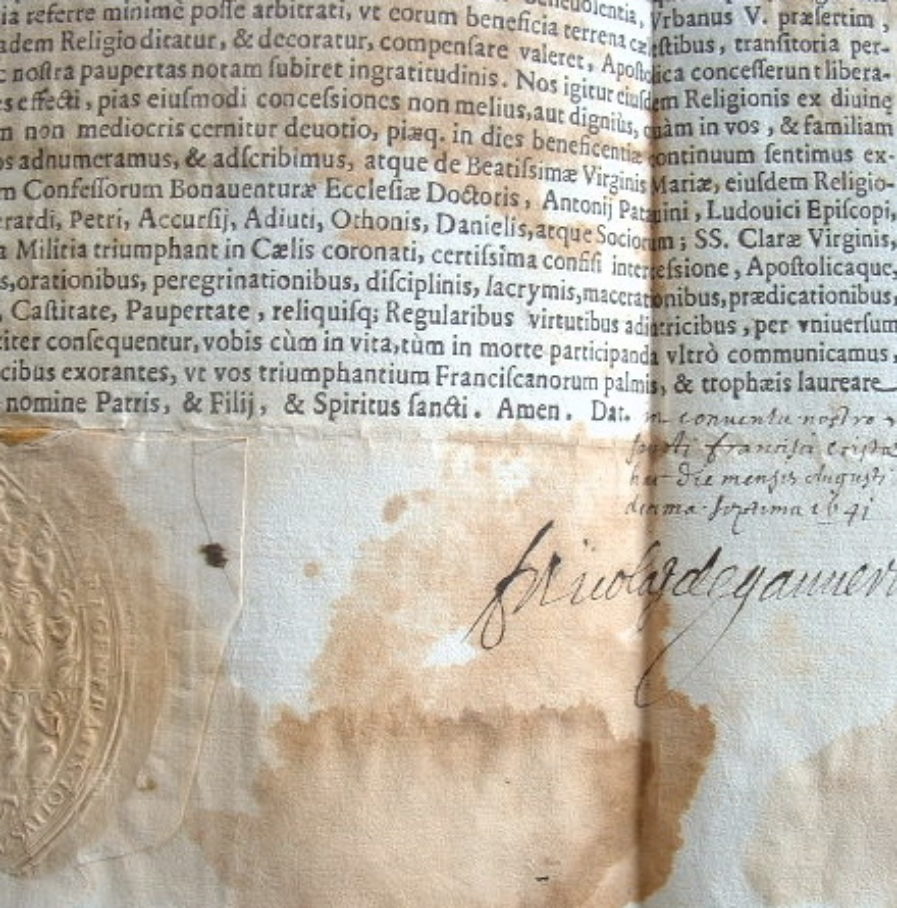 ia referre minimè poſſe arbitrati, vt eorum beneficia terrena cæleſtibus, tranſitoria per-
Vrbanus V. præſertim,
adem Religio ditatur, & decoratur, compenſare valeret, Apoſtolica conceſſerunt libera-
c noſtra paupertas notam ſubiret ingratitudinis. Nos igitur eiuſdem Religionis ex diuinę
es effecti, pias eiuſmodi conceſsiones non melius, aut digniùs, quàm in vos, & familiam
m non mediocris cernitur deuotio, piæq. in dies beneficentiæ continuum ſentimus ex-
os adnumeramus, & adſcribimus, atque de Beatiſsimæ Virginis Mariæ, eiuſdem Religio-
m Confeſſorum Bonauenturæ Eccleſiæ Doctoris, Antonij Patauini, Ludouici Epiſcopi,
erardi, Petri, Accurſij, Adiuti, Othonis, Danielis, atque Sociorum; SS. Claræ Virginis,
a Militia triumphant in Cælis coronati, certiſsima confiſi interceſsione, Apoſtolicaque,
s, orationibus, peregrinationibus, diſciplinis, lacrymis, macerationibus, prædicationibus,
, Caſtitate, Paupertate, reliquiſq; Regularibus virtutibus adiutricibus, per vniuerſum
citer conſequentur, vobis cùm in vita, tùm in morte participanda vltrò communicamus,
cibus exorantes, vt vos triumphantium Franciſcanorum palmis, & trophæis laureare
nomine Patris, & Filij, & Spiritus ſancti. Amen. Dat.
in conventu nostro
sancti francisci
die mensis Augusti
decima septima 1641
fr Nicolas de gannert
TOTIVS